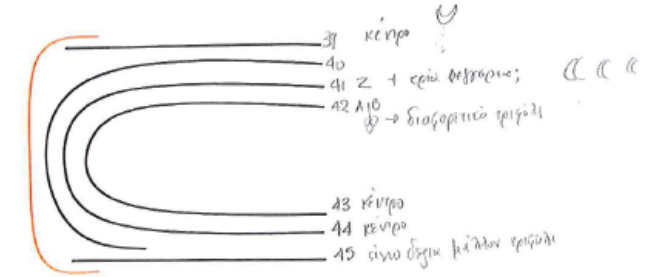 39 κέντρο
40
41 Z + τρία φεγγάρια;
42 A/B
→ διαφορετικό τριφύλι
43 κέντρο
44 κέντρο
45 άνω δεξιά μάλλον τριφύλι